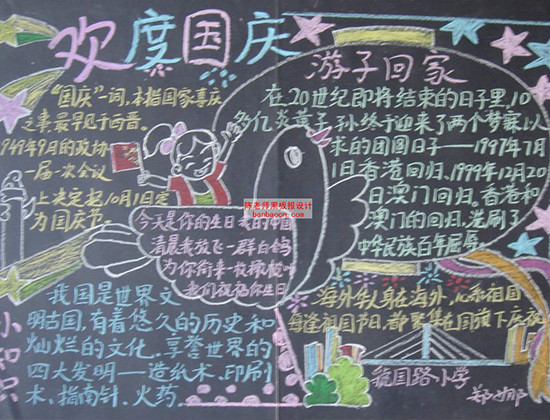 欢度国庆
“国庆”一词,本指国家喜庆
之事,最早见于西晋。
1949年9月的政协
一届一次会议
上决定把10月1日定
为国庆节。
游子回家
在20世纪即将结束的日子里,10
多亿炎黄子孙终于迎来了两个梦寐以
求的团圆日子——1997年7月
1日香港回归、1999年12月20
日澳门回归。香港和
澳门的回归,洗刷了
中华民族百年屈辱
陈老师黑板报设计
banbaocn.com
今天是你的生日 我的中国
清晨我放飞一群白鸽
为你衔来一枚橄榄叶
我们祝福你生日
小知识
我国是世界文
明古国,有着悠久的历史和
灿烂的文化。享誉世界的
四大发明——造纸术、印刷
术、指南针、火药。
海外华人身在海外,心系祖国
每逢祖国节日,都聚集在国旗下庆祝
国路小学
郑娜